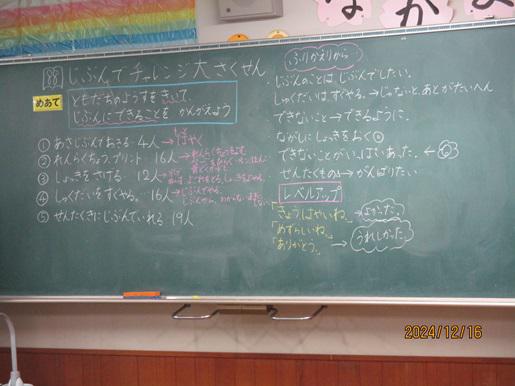 なかよ
じぶんで チャレンジ大さくせん
めあて
ともだちのようすをきいて、
じぶんにできることを かんがえよう
① あさじぶんでおきる 4人 →はやく
② れんらくちょう、プリント 16人
③ しょっきをさげる 12人
④ しゅくだいをすぐやる。 16人
⑤ せんたくきにじぶんでいれる 19人
ふりかえりから
・じぶんのことは、じぶんでしたい。
・しゅくだいは、すぐやる。→じゃないと、あとがたいへん
・できないこと→できるように。
・ながしに しょっきをおく
・できないことがいっぱいあった。←
・せんたくもの→がんばりたい
レベルアップ
「きょうはやいね。」→よかった。
「めずらしいね。」
「ありがとう。」→うれしかった。
2024/12/16